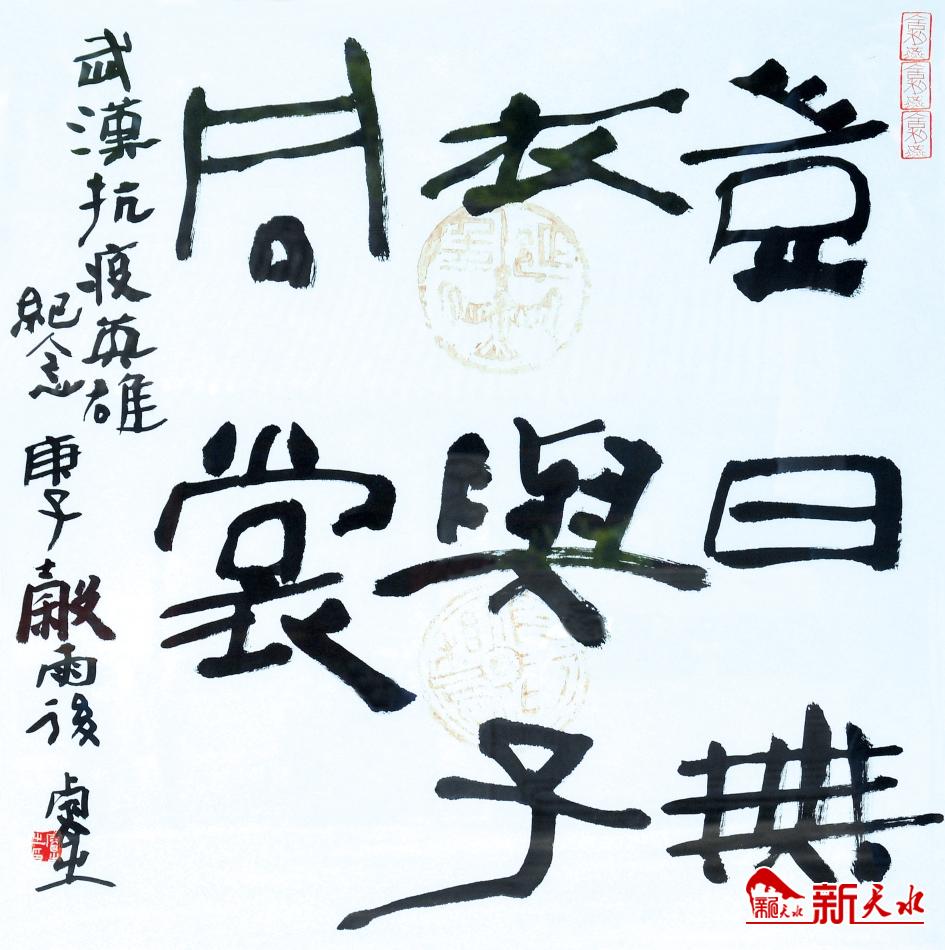 豈曰無
衣與子
同裳
武漢抗疫英雄
紀念 庚子穀雨後
新天水